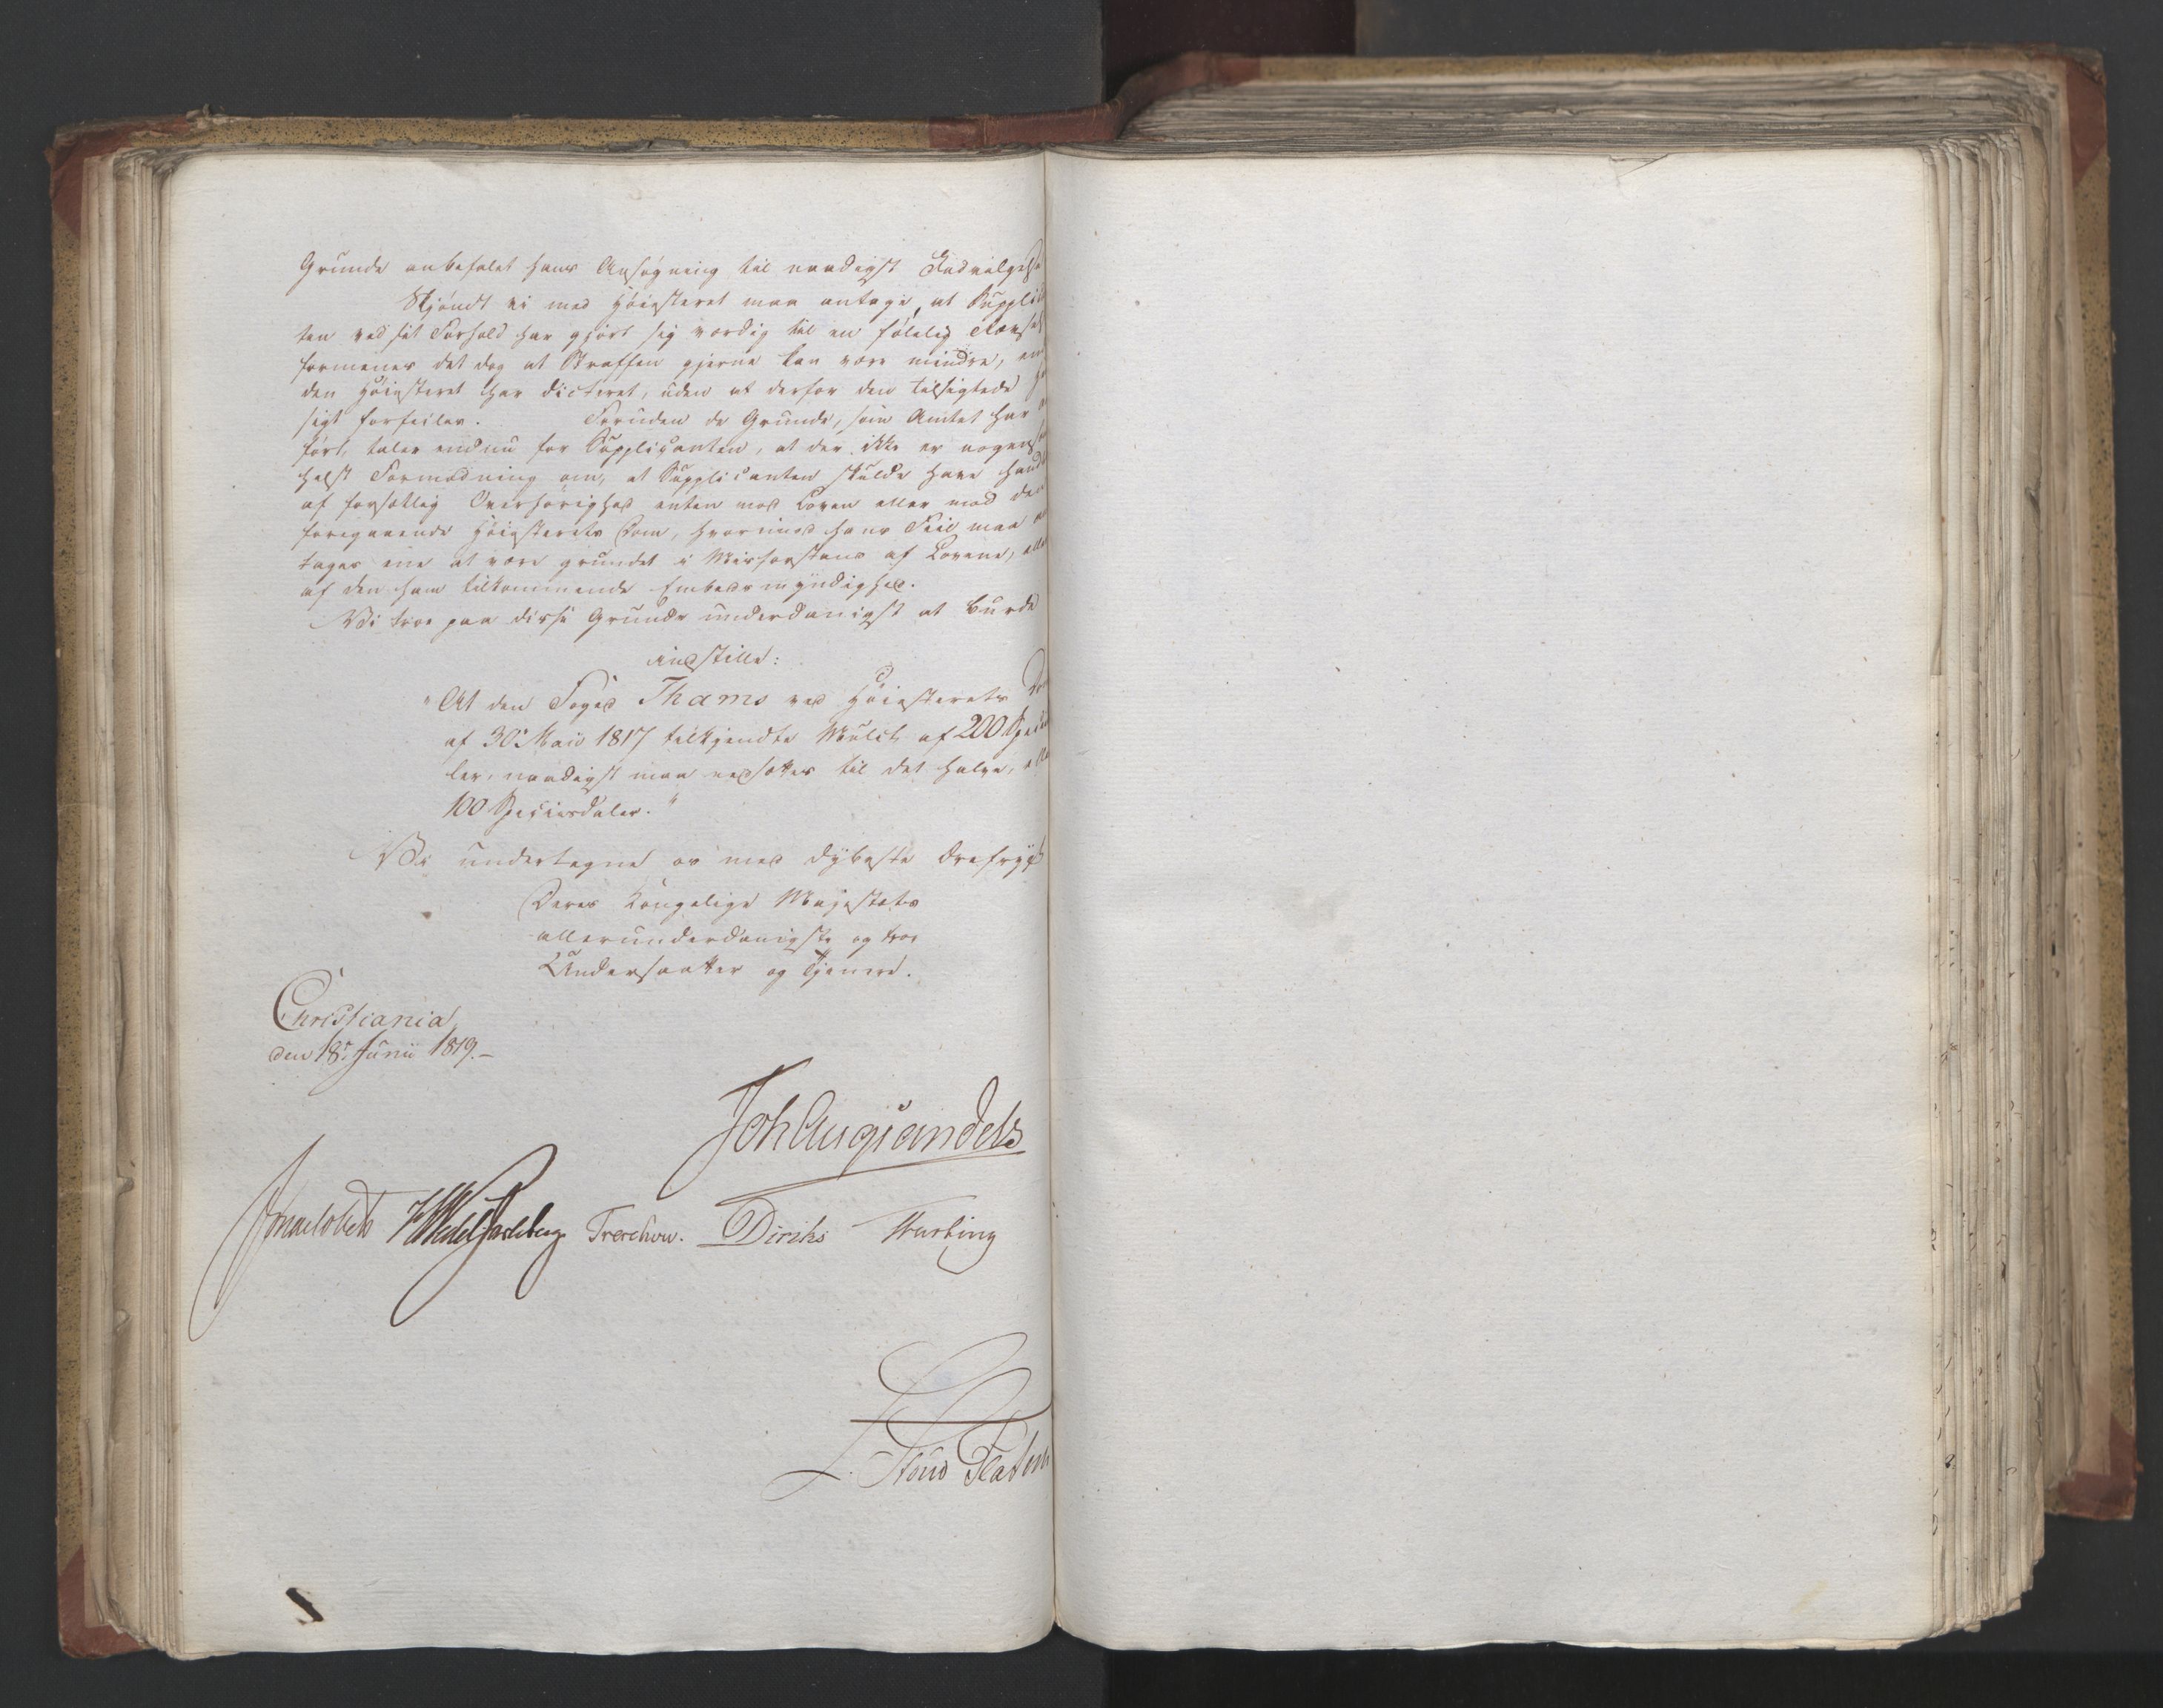 Grunde anbefalet hans Ansøgning til naadigst Indvilgelse
Skjøndt vi med Høiesteret maa antage, at Supplican
ten ved sit Forhold har gjort sig værdig til en følelig
formenes det dog at Straffen gjerne kan være mindre, end
den Høiesteret har dicteret, uden at derfor den tilsigtede
sigt forfeiles. Foruden de Grunde, som Amtet har
ført, taler endnu for Supplicanten, at der ikke er nogen
helst Formodning om, at Supplicanten skulde have handl
af forsætlig Overhørighed enten mod Loven eller mod den
foregaaende Høiesterets Dom, hvorimod hans Feil maa
tages ene at være grundet i Misforstand af Lovene, eller
af den ham tilkommende Embedsmyndighed.
Vi troe paa disse Grunde underdanigst at burde
indstille:
"At den Foged Thams ved Høiesterets Dom
af 30te Maii 1817 tilkjendte Mulct af 200 Specied
ler, naadigst maa nedsættes til det halve, eller
100 Speciesdaler."
Vi undertegne os med dybeste Ærefrygt
Deres Kongelige Majestæts
allerunderdanigste og troe
Undersaatter og Tjenere.
Christiania
den 18de Junii 1819.-
Joh Aug Sandels
HWedel Jarlsberg Treschow. Diriks